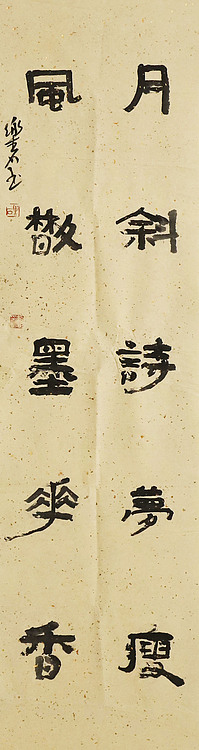 月斜詩夢瘦
風散墨華香